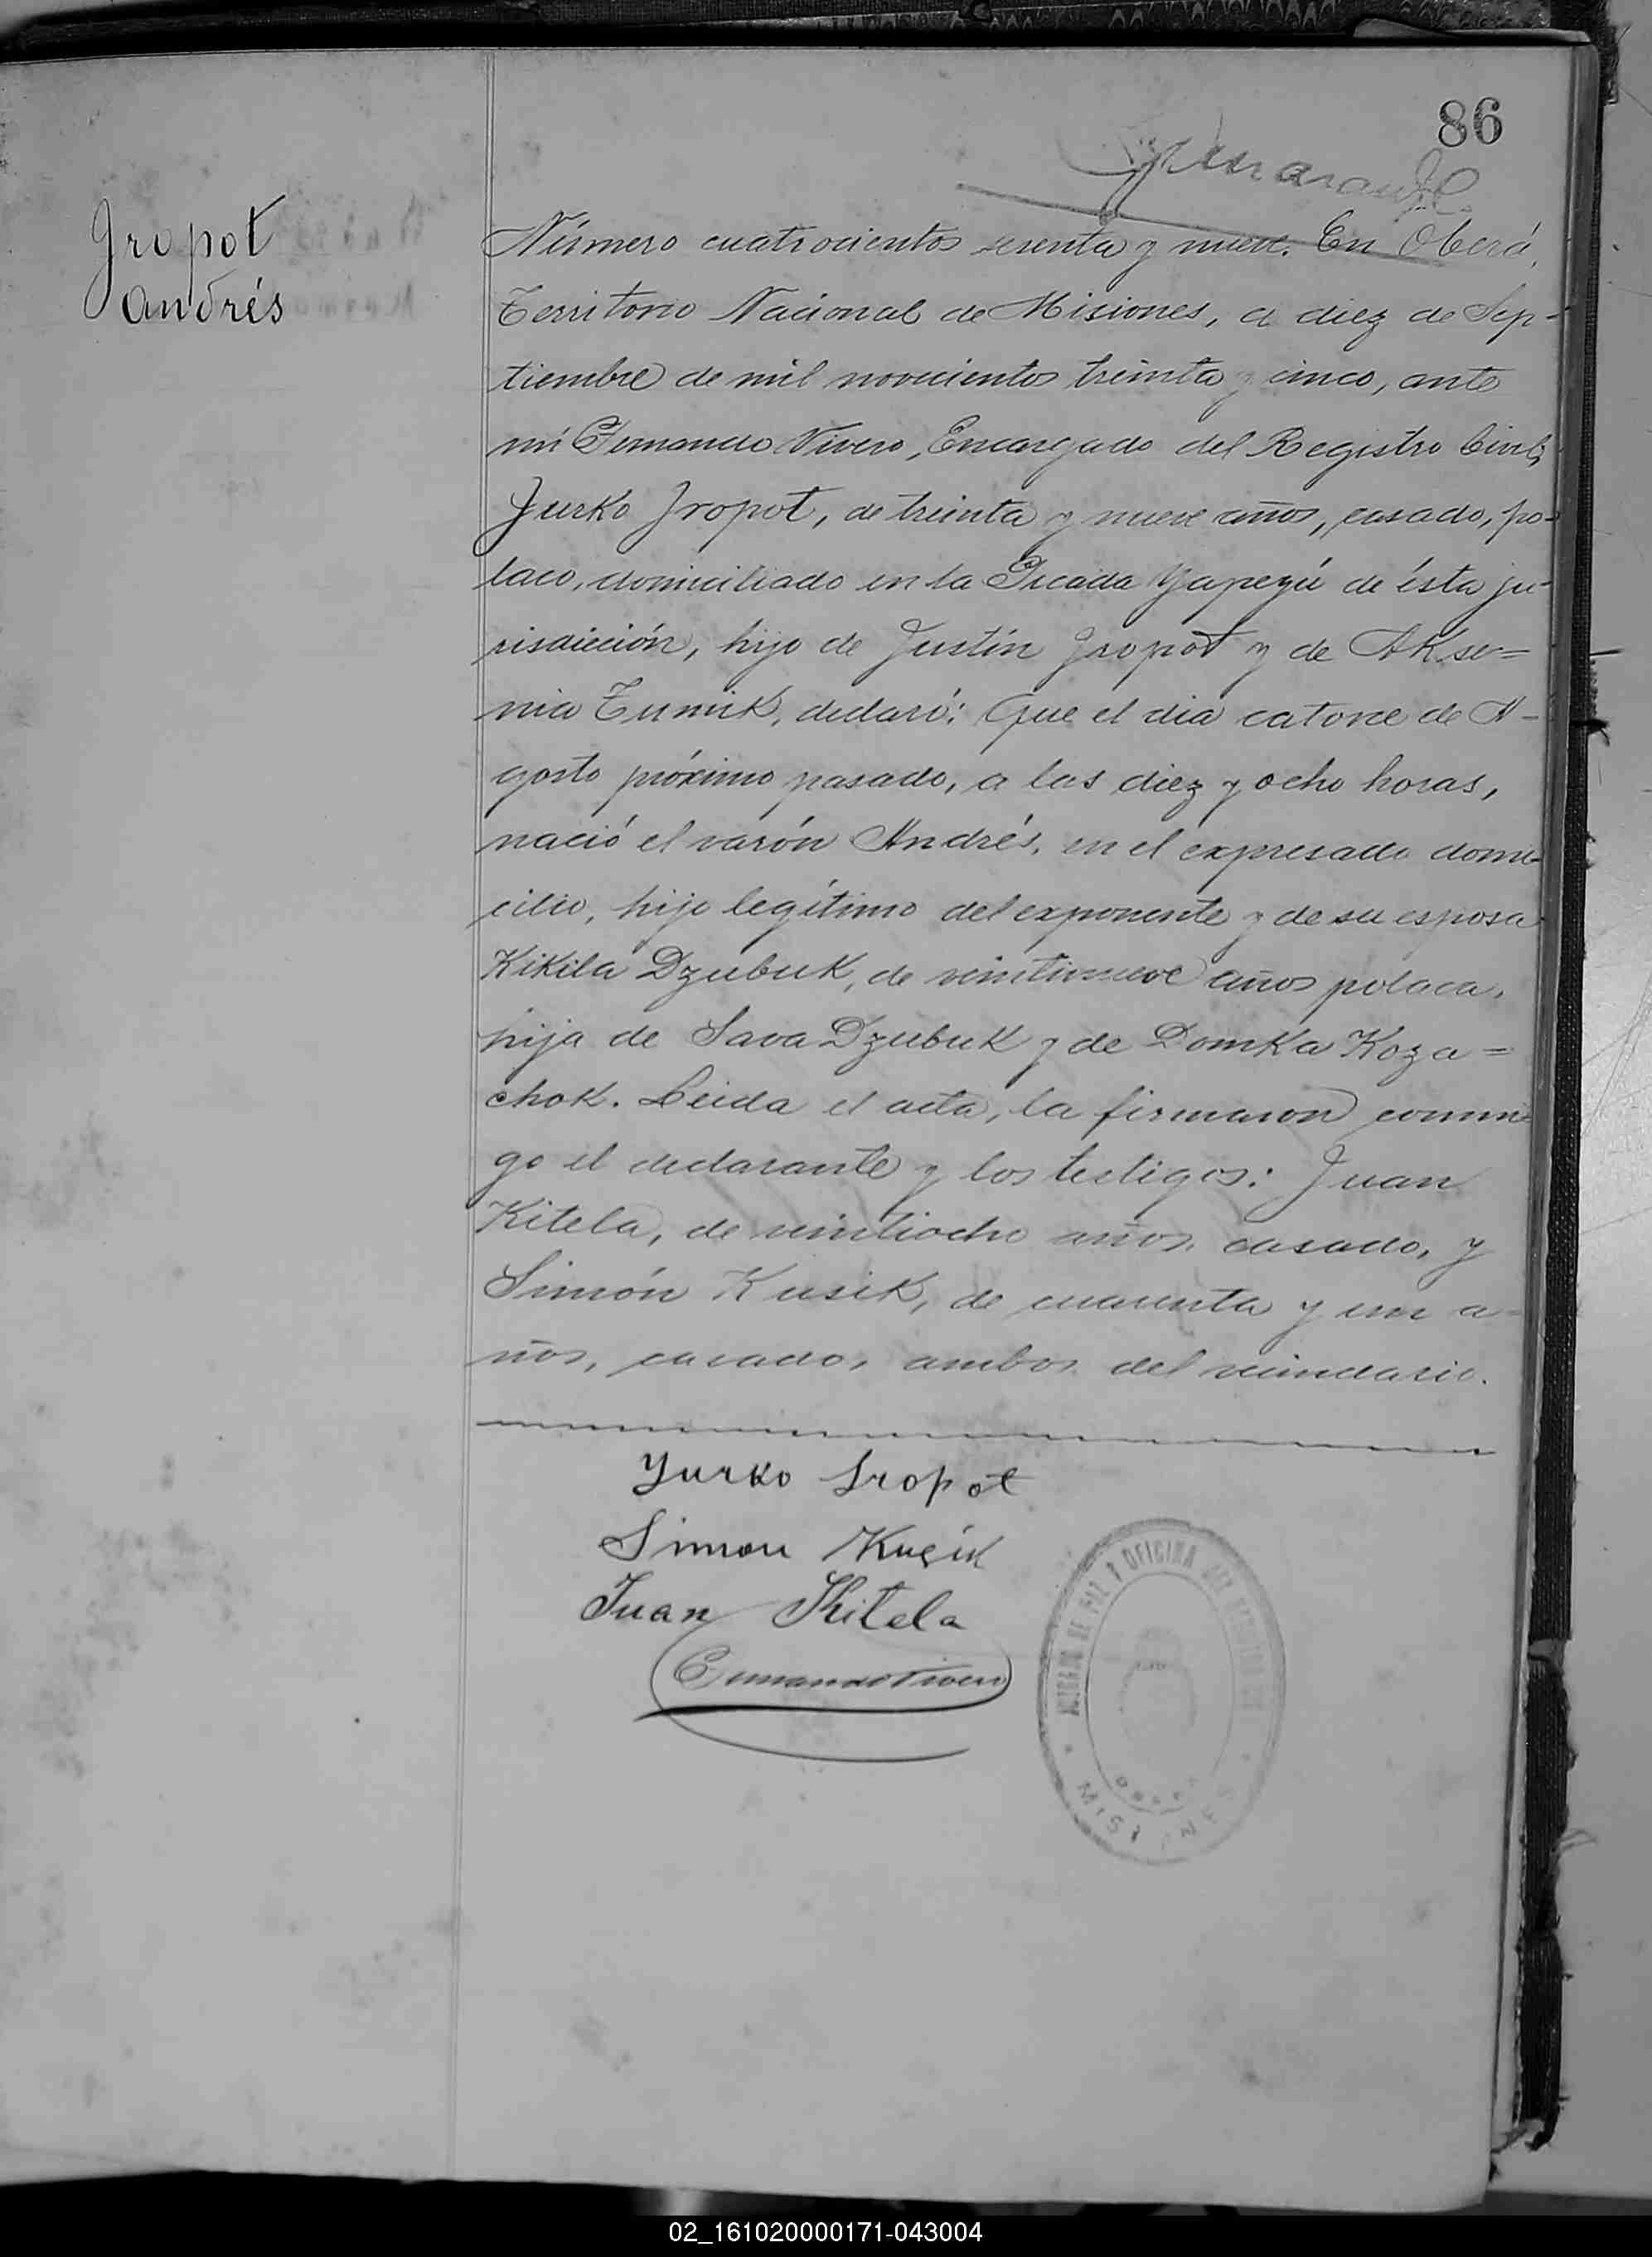 86
Jropot
Andrés
Número cuatrocientos sesenta y nueve. En Oberá,
Territorio Nacional de Misiones, a diez de Sep-
tiembre de mil novecientos treinta y cinco, ante
mí Fernando Vivero, Encargado del Registro Civil,
Jurko Jropot, de treinta y nueve años, casado, po-
laco, domiciliado en la Picada Yapeyú de ésta ju-
risdicción, hijo de Justín Jropot y de Akse=
nia Tumik, declaró: Que el día catorce de A-
gosto próximo pasado, a las diez y ocho horas,
nació el varón Andrés, en el expresado domi-
cilio, hijo legítimo del exponente y de su esposa
Kikila Dzubuk, de veintinueve años polaca,
hija de Sava Dzubuk y de Domka Koza=
chok. Leida el acta, la firmaron conmi-
go el declarante y los testigos: Juan
Kitela, de veintiocho años, casado, y
Simón Kusik, de cuarenta y un a=
ños, casado, ambos del vecindario.
Yurko Jropot
Simon Kusik
Juan Kitela
Fernando Vivero
JUZGADO DE PAZ Y OFICINA DEL REGISTRO
OBERA
MISIONES
02_161020000171-043004